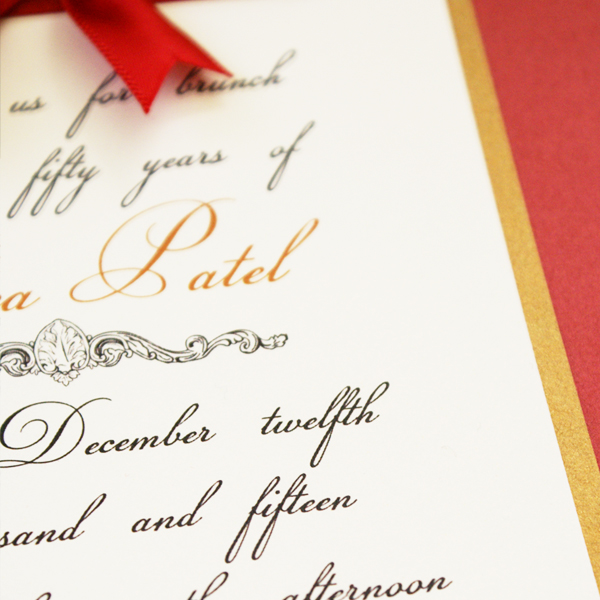 us for brunch
fifty years of
a Patel
December twelfth
sand and fifteen
afternoon